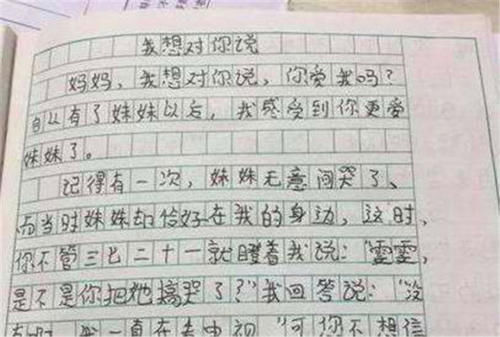 我想对你说
妈妈，我想对你说，你爱我吗？
自从有了妹妹以后，我感受到你更爱
妹妹了。
记得有一次，妹妹无意间哭了、
而当时妹妹却恰好在我的身边，这时，
你不管三七二十一就瞪着我说：“雯雯，
是不是你把她搞哭了？”我回答说：“没
我一直在看电视”可您不想信